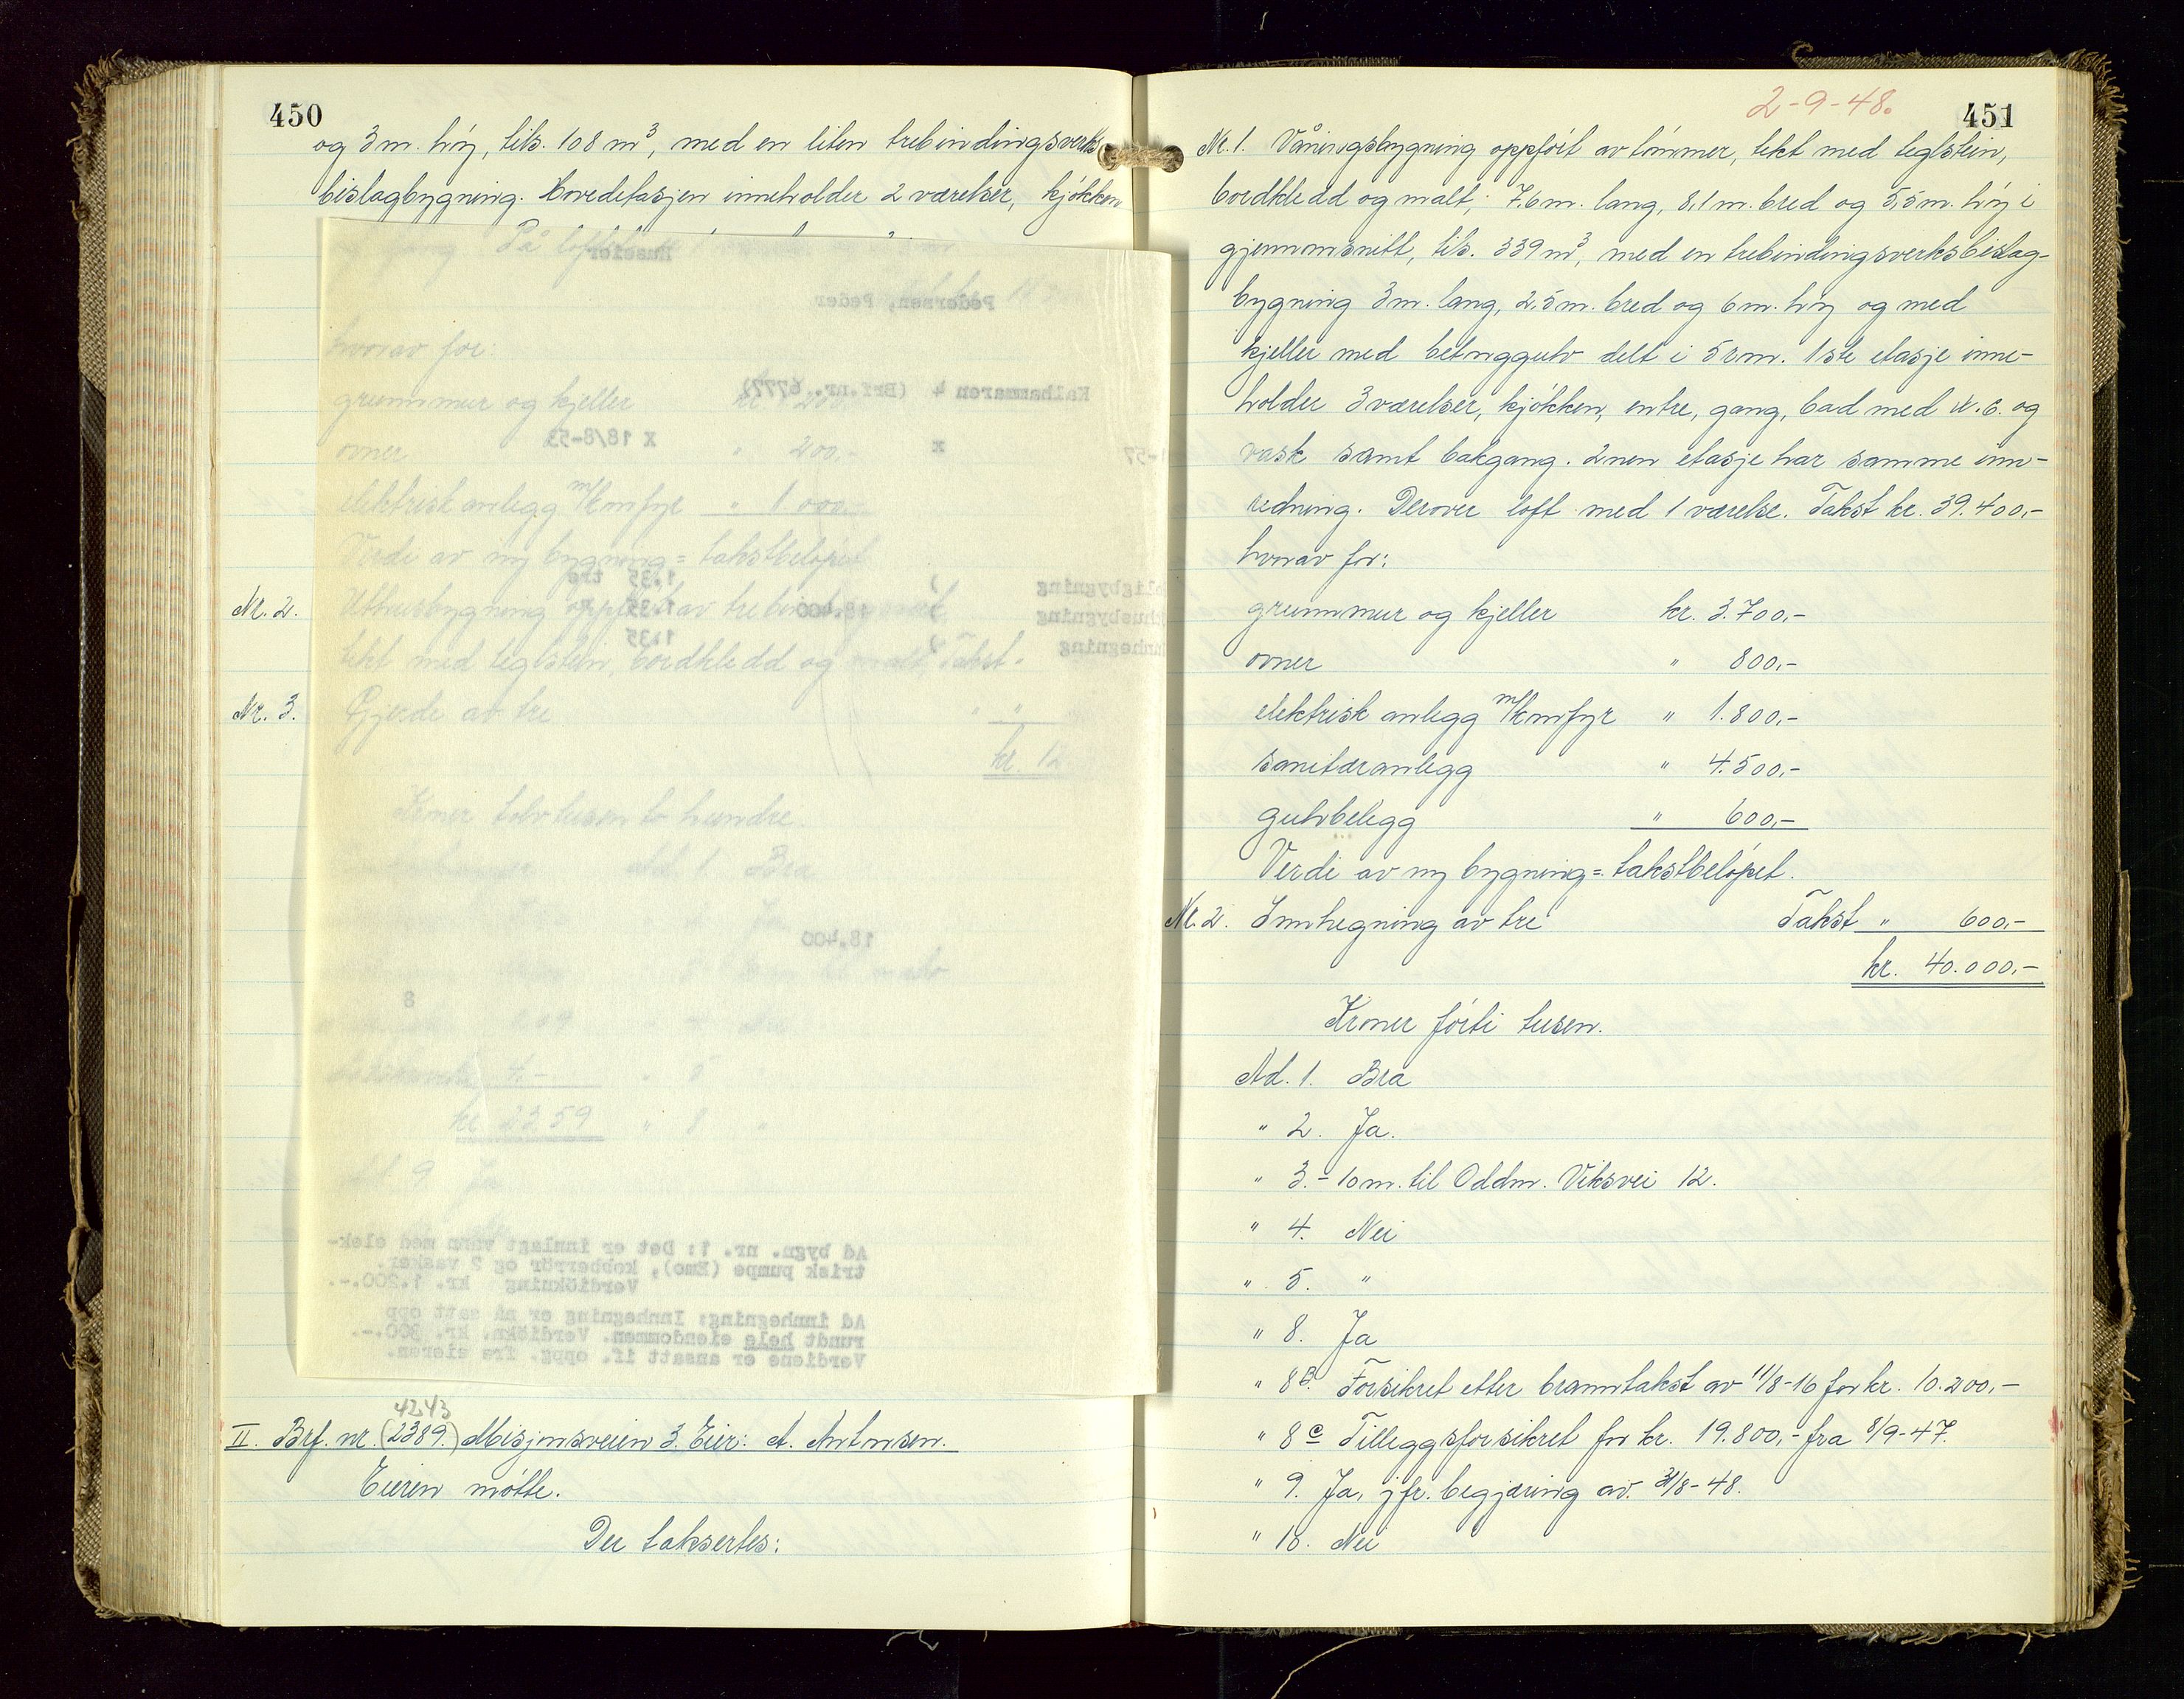 450
og 3 m. høy, tils. 108 m³, med en liten trebindingsverks
bislagbygning. Hovedetasjen inneholder 2 værelser, kjøkken
og gang. På loftet
hvorav for:
grunnmur og kjeller kr. 200,-
ovner " 200,-
elektrisk anlegg m/komfyr " 1.000,-
Verdi av ny bygning = takstbeløpet
Nr. 2. Uthusbygning oppført av trebindingsverk
tekt med teglstein, bordkledd og malt, Takst
Nr. 3. Gjerde av tre " "
kr. 12
Kroner tolv tusen to hundre.
Ad. 1 Bra
" Ja
4,- " 8
kr. 2359 " 8 "
Ad. 9 Ja
Huseier
Pedersen, Peder
Kalhammaren 4 (Brf.nr. 6777)
x x 18/8-53
-57
ligbygning ) 1.35 tre
husbygning ) 18.400 1.35
nnhegning ) 1.35
18.400
8
Ad bygn. nr. 1: Det er innlagt vann med elek-
trisk pumpe (Emo), kobberrör og 2 vasker.
Verdiökning kr. 1.200.-.
Ad innhegning: Innhegning er nå satt opp
rundt hele eiendommen. Verdiökn. kr. 300.-.
Verdiene er ansatt if. oppg. fra eieren.
4243
II. Brf. nr. (2389.) Misjonsveien 3. Eier: A. Antonsen.
Eieren møtte.
Der taksertes:
2-9-48.
451
Nr. 1. Våningsbygning oppført av tømmer, tekt med teglstein,
bordkledd og malt, 7,6 m. lang, 8,1 m. bred og 5,5 m. høy i
gjennomsnitt, tils. 339 m³, med en trebindingsverksbislag-
bygning 3 m. lang, 2,5 m. bred og 6 m. høy og med
kjeller med betonggulv delt i 5 rom. 1ste etasje inne-
holder 3 værelser, kjøkken, entre, gang, bad med w.c. og
vask samt bakgang. 2nen etasje har samme inn-
redning. Derover loft med 1 værelse. Takst kr. 39.400,-
hvorav for:
grunnmur og kjeller kr. 3.700,-
ovner " 800,-
elektrisk anlegg m/komfyr " 1.800,-
sanitæranlegg " 4.500,-
gulvbelegg " 600,-
Verdi av ny bygning = takstbeløpet.
Nr. 2. Innhegning av tre Takst " 600,-
kr. 40.000,-
Kroner førti tusen.
Ad. 1. Bra
" 2. Ja.
" 3. - 10 m. til Oddm. Viksvei 12.
" 4. Nei
" 5. "
" 8. Ja
" 8 B. Forsikret etter branntakst av 11/8-16 for kr. 10.200,-
" 8 c Tilleggsforsikret for kr. 19.800,- fra 8/9-47.
" 9. Ja, jfr. begjæring av 31/8-48.
" 10. Nei